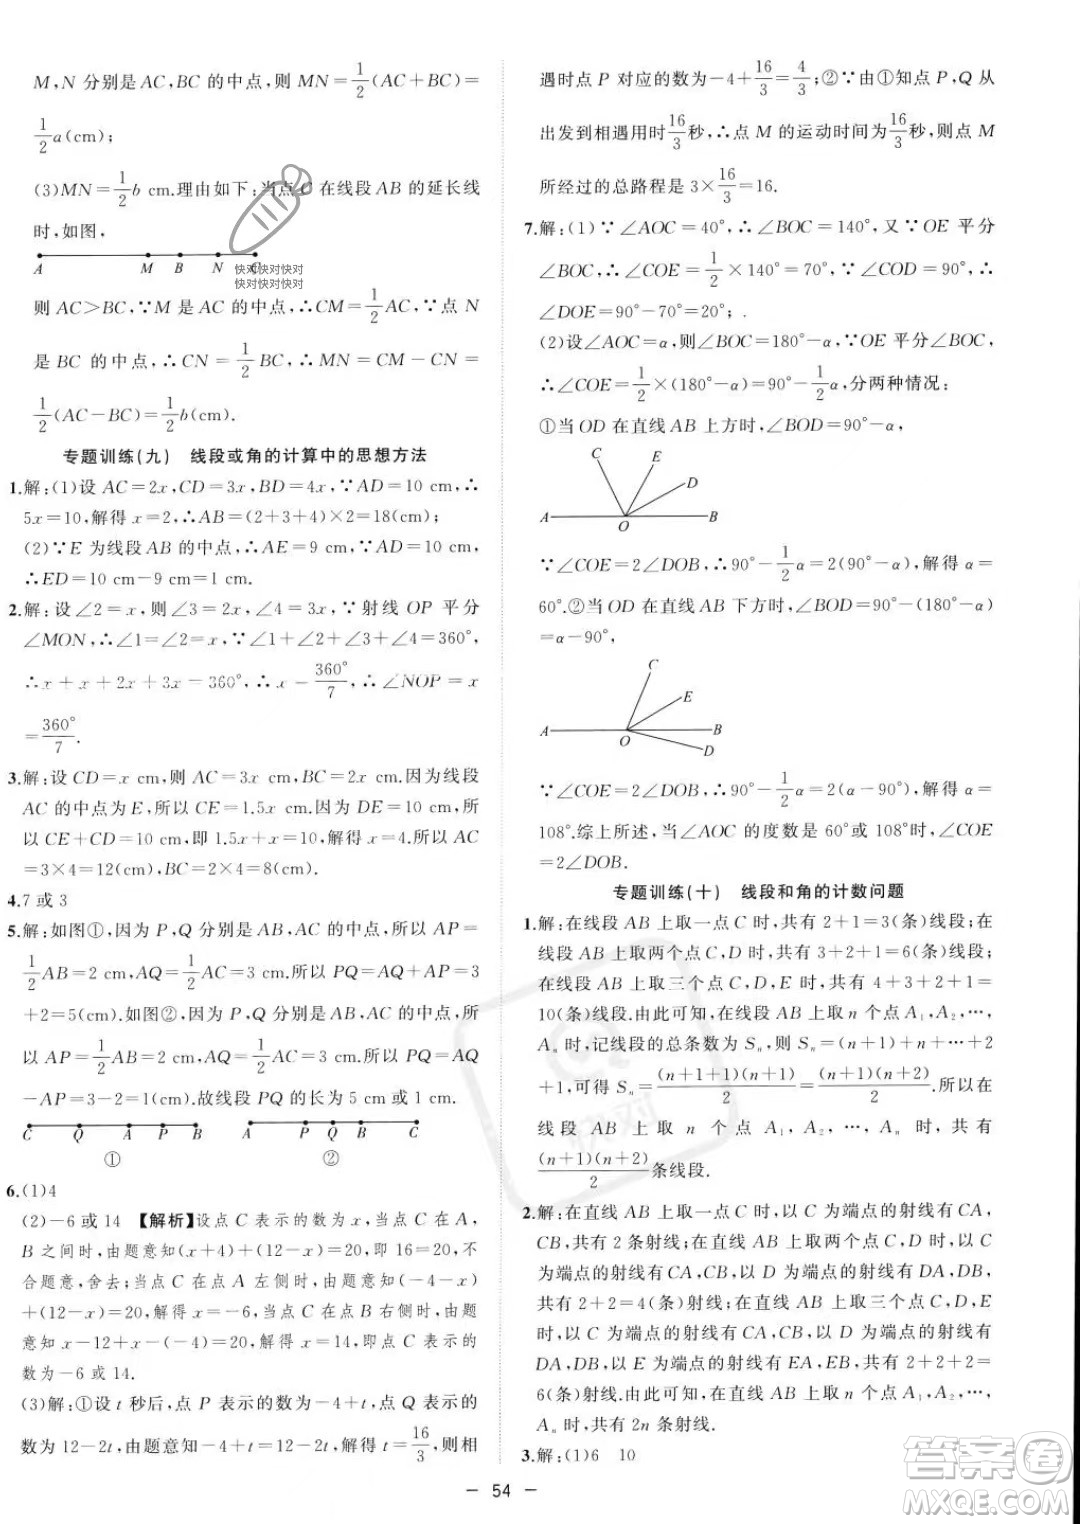 M,N 分别是 AC,BC 的中点,则 MN=1/2(AC+BC)=
1/2a(cm);
(3)MN=1/2b cm.理由如下:当点 C 在线段 AB 的延长线
时,如图,
A M B N C
快对快对快对
快对快对快对
则 AC>BC,∵M 是 AC 的中点,∴CM=1/2AC,∵点 N
是 BC 的中点,∴CN=1/2BC,∴MN=CM-CN=
1/2(AC-BC)=1/2b(cm).
专题训练(九) 线段或角的计算中的思想方法
1.解:(1)设 AC=2x,CD=3x,BD=4x,∵AD=10 cm,∴
5x=10,解得 x=2,∴AB=(2+3+4)×2=18(cm);
(2)∵E 为线段 AB 的中点,∴AE=9 cm,∵AD=10 cm,
∴ED=10 cm-9 cm=1 cm.
2.解:设∠2=x,则∠3=2x,∠4=3x,∵射线 OP 平分
∠MON,∴∠1=∠2=x,∵∠1+∠2+∠3+∠4=360°,
∴x+x+2x+3x=360°,∴x=360°/7,∴∠NOP=x
=360°/7.
3.解:设 CD=x cm,则 AC=3x cm,BC=2x cm.因为线段
AC 的中点为 E,所以 CE=1.5x cm.因为 DE=10 cm,所
以 CE+CD=10 cm,即 1.5x+x=10,解得 x=4.所以 AC
=3×4=12(cm),BC=2×4=8(cm).
4.7 或 3
5.解:如图①,因为 P,Q 分别是 AB,AC 的中点,所以 AP=
1/2AB=2 cm,AQ=1/2AC=3 cm.所以 PQ=AQ+AP=3
+2=5(cm).如图②,因为 P,Q 分别是 AB,AC 的中点,所
以 AP=1/2AB=2 cm,AQ=1/2AC=3 cm.所以 PQ=AQ
-AP=3-2=1(cm).故线段 PQ 的长为 5 cm 或 1 cm.
C Q A P B A P Q B C
① ②
6.(1)4
(2)-6 或 14 【解析】设点 C 表示的数为 x,当点 C 在 A,
B 之间时,由题意知(x+4)+(12-x)=20,即 16=20,不
合题意,舍去;当点 C 在点 A 左侧时,由题意知(-4-x)
+(12-x)=20,解得 x=-6,当点 C 在点 B 右侧时,由题
意知 x-12+x-(-4)=20,解得 x=14,即点 C 表示的
数为-6 或 14.
(3)解:①设 t 秒后,点 P 表示的数为-4+t,点 Q 表示的
数为 12-2t,由题意知-4+t=12-2t,解得 t=16/3,则相
遇时点 P 对应的数为-4+16/3=4/3;②∵由①知点 P,Q 从
出发到相遇用时16/3秒,∴点 M 的运动时间为16/3秒,则点 M
所经过的总路程是 3×16/3=16.
7.解:(1)∵∠AOC=40°,∴∠BOC=140°,又∵OE 平分
∠BOC,∴∠COE=1/2×140°=70°,∵∠COD=90°,∴
∠DOE=90°-70°=20°;.
(2)设∠AOC=α,则∠BOC=180°-α,∵OE 平分∠BOC,
∴∠COE=1/2×(180°-α)=90°-1/2α,分两种情况:
①当 OD 在直线 AB 上方时,∠BOD=90°-α,
C E D
A O B
∵∠COE=2∠DOB,∴90°-1/2α=2(90°-α),解得 α=
60°.②当 OD 在直线AB 下方时,∠BOD=90°-(180°-α)
=α-90°,
C
E
A O B
D
∵∠COE=2∠DOB,∴90°-1/2α=2(α-90°),解得 α=
108°.综上所述,当∠AOC 的度数是 60°或 108°时,∠COE
=2∠DOB.
专题训练(十) 线段和角的计数问题
1.解:在线段 AB 上取一点 C 时,共有 2+1=3(条)线段;在
线段 AB 上取两个点 C,D 时,共有 3+2+1=6(条)线段;
在线段 AB 上取三个点 C,D,E 时,共有 4+3+2+1=
10(条)线段.由此可知,在线段 AB 上取 n 个点 A₁,A₂,…,
Aₙ 时,记线段的总条数为 Sₙ,则 Sₙ=(n+1)+n+…+2
+1,可得 Sₙ=(n+1+1)(n+1)/2=(n+1)(n+2)/2.所以在
线段 AB 上取 n 个点 A₁,A₂,…,Aₙ 时,共有
(n+1)(n+2)/2条线段.
2.解:在直线 AB 上取一点 C 时,以 C 为端点的射线有 CA,
CB,共有 2 条射线;在直线 AB 上取两个点 C,D 时,以 C
为端点的射线有 CA,CB,以 D 为端点的射线有 DA,DB,
共有 2+2=4(条)射线;在直线 AB 上取三个点 C,D,E
时,以 C 为端点的射线有 CA,CB,以 D 为端点的射线有
DA,DB,以 E 为端点的射线有 EA,EB,共有 2+2+2=
6(条)射线.由此可知,在直线 AB 上取 n 个点 A₁,A₂,…,
Aₙ 时,共有 2n 条射线.
3.解:(1)6 10
— 54 —
快对
答案圈
MXQE.COM